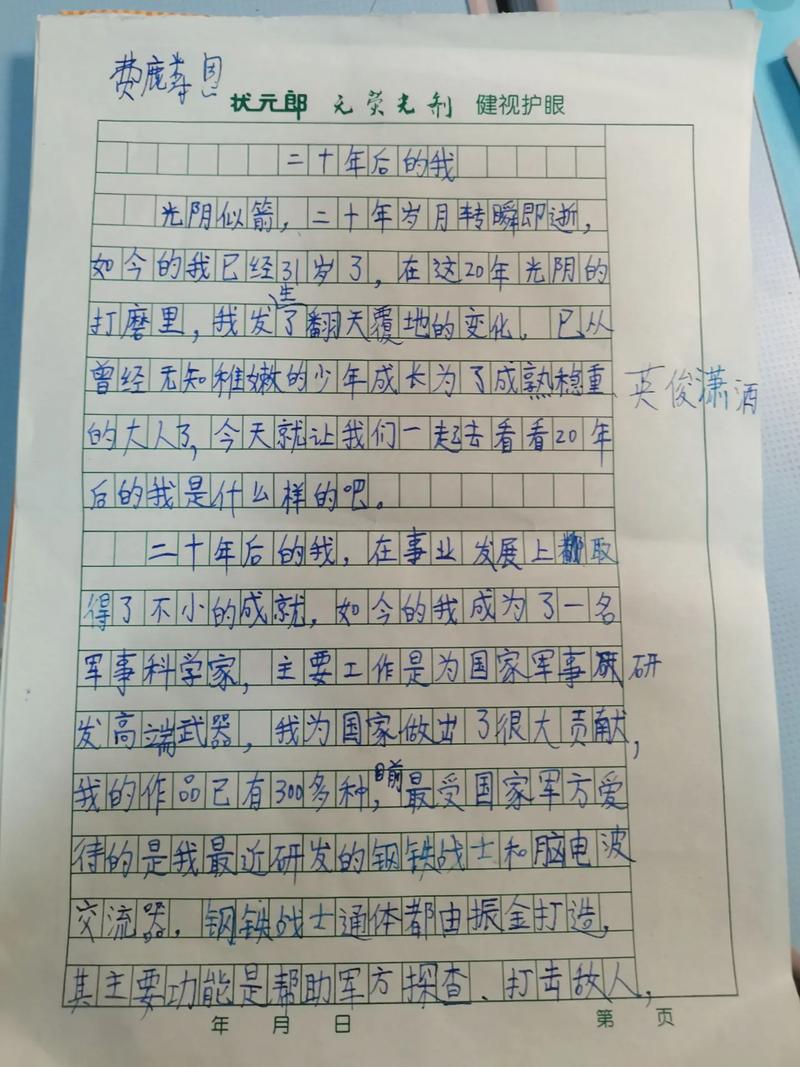 费鹿
状元郎 无荧光剂 健视护眼
二十年后的我
光阴似箭，二十年岁月转瞬即逝，
如今的我已经31岁了，在这20年光阴的
打磨里，我发生了翻天覆地的变化。已从
曾经无知稚嫩的少年成长为了成熟稳重、英俊潇洒
的大人了，今天就让我们一起去看看20年
后的我是什么样的吧。
二十年后的我，在事业发展上都取
得了不小的成就，如今的我成为了一名
军事科学家，主要工作是为国家军事研
发高端武器，我为国家做出了很大贡献，
我的作品已有300多种，目前最受国家军方爱
待的是我最近研发的钢铁战士和脑电波
交流器。钢铁战士通体都由振金打造，
其主要功能是帮助军方探查、打击敌人，
年 月 日 第 页